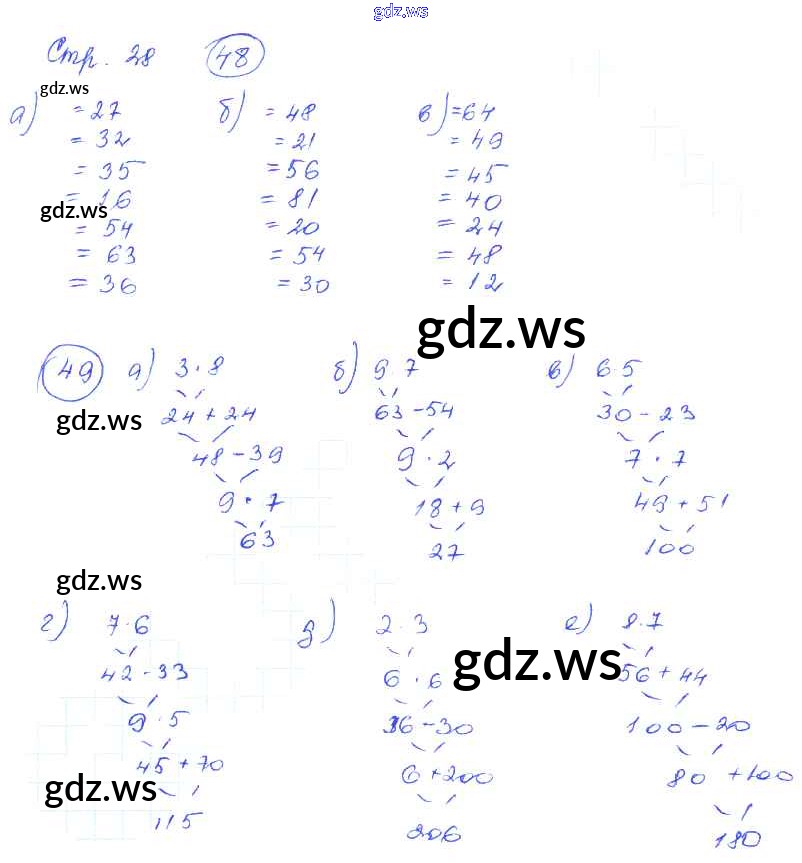 gdz.ws
Стр. 28 48
gdz.ws
а) = 27 б) = 48 в) = 64
= 32 = 21 = 49
= 35 = 56 = 45
= 16 = 81 = 40
gdz.ws
= 54 = 20 = 24
= 63 = 54 = 48
= 36 = 30 = 12
gdz.ws
49 а) 3·8 б) 9·7 в) 6·5
gdz.ws
24 + 24 63 - 54 30 - 23
48 - 39 9·2 7·7
9·7 18 + 9 49 + 51
63 27 100
gdz.ws
г) 7·6 д) 2·3 е) 8·7
gdz.ws
42 - 33 6·6 56 + 44
9·5 36 - 30 100 - 20
45 + 70 6 + 200 80 + 100
gdz.ws
115 206 180